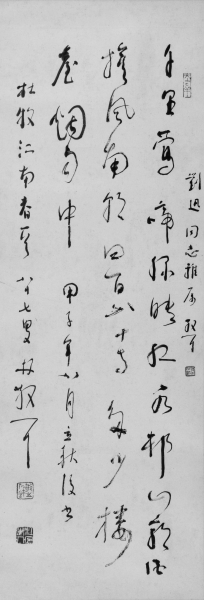 劉迅同志雅屬 散耳
千里鶯啼綠映紅水邨山郭酒
旗風南朝四百八十寺多少樓
臺烟雨中 甲子年八月立秋後書
杜牧江南春 八十七叟林散耳